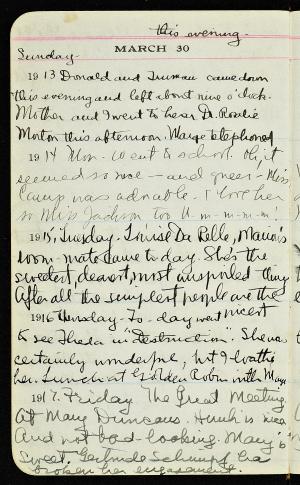 this evening.
MARCH 30
Sunday
1913 Donald and Truman came down
this evening and left about nine o'clock.
Mother and I went to hear Dr. Rosalie
Morton this afternoon. Marge telephoned
1914 Mon. Went to school. Oh, it
seemed so nice — and queer — Miss
Camp was adorable. I love her
so Miss Jackson too U-m-m-m-m!
1915, Tuesday. Louise De Belle, Marion's
room-mate came to day. She's the
sweetest, dearest, most unspoiled thing
After all the simplest people are the
1916 Thursday - To-day went
to see Theda in "Destruction". She was
certainly wonderful, but I loathe
her. Lunch at Golden Robin with Marge
1917. Friday The Great Meeting.
At Mary Duncans. Hunk is nice
and not bad-looking. Mary's
sweet. Gertrude Schumpf has
broken her engagement.